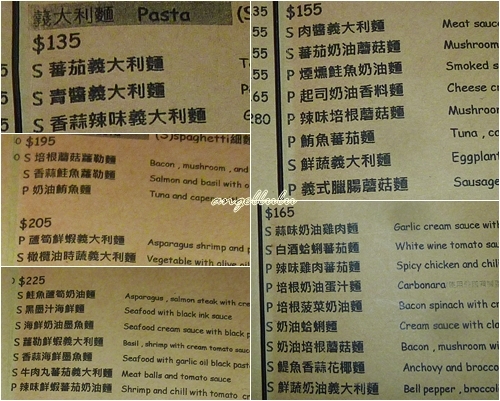 義大利麵 Pasta (S
$135
S 蕃茄義大利麵
S 青醬義大利麵
S 香蒜辣味義大利麵
$195 (S)spaghetti細
S 培根蘑菇蘿勒麵 Bacon , mushroom , and
S 香蒜鮭魚蘿勒麵 Salmon and basil with o
P 奶油鮪魚麵 Tuna and cape
$205
P 蘆筍鮮蝦義大利麵 Asparagus shrimp and p
S 橄欖油時蔬義大利麵 Vegetable with olive oil
$225
S 鮭魚蘆筍奶油麵 Asparagus , salmon steak with cre
S 黑墨汁海鮮麵 Seafood with black ink sauce
S 海鮮奶油墨魚麵 Seafood cream sauce with black p
S 蘿勒鮮蝦義大利麵 Basil , shrimp with cream tomato sauc
S 香蒜海鮮墨魚麵 Seafood with garlic oil black paste
S 牛肉丸蕃茄義大利麵 Meat balls and tomato sauce
P 辣味鮮蝦蕃茄奶油麵 Shrimp and chili with tomato cr
35 $155
35 S 肉醬義大利麵 Meat sauce
S 蕃茄奶油蘑菇麵 Mushroom
55 P 煙燻鮭魚奶油麵 Smoked s
65 P 起司奶油香料麵 Cheese c
280 P 辣味培根蘑菇麵 Mushroom
P 鮪魚蕃茄麵 Tuna , ca
S 鮮蔬義大利麵 Eggplant
P 義式臘腸蘑菇麵 Sausage
angellulu
$165
S 蒜味奶油雞肉麵 Garlic cream sauce with
S 白酒蛤蜊蕃茄麵 White wine tomato sau
P 辣味雞肉蕃茄麵 Spicy chicken and chil
P 培根奶油蛋汁麵 Carbonara
P 培根菠菜奶油麵 Bacon spinach with cr
S 奶油蛤蜊麵 Cream sauce with clo
S 奶油培根蘑菇麵 Bacon , mushroom wi
S 鯷魚香蒜花椰麵 Anchovy and broccol
S 鮮蔬奶油義大利麵 Bell pepper , broccol